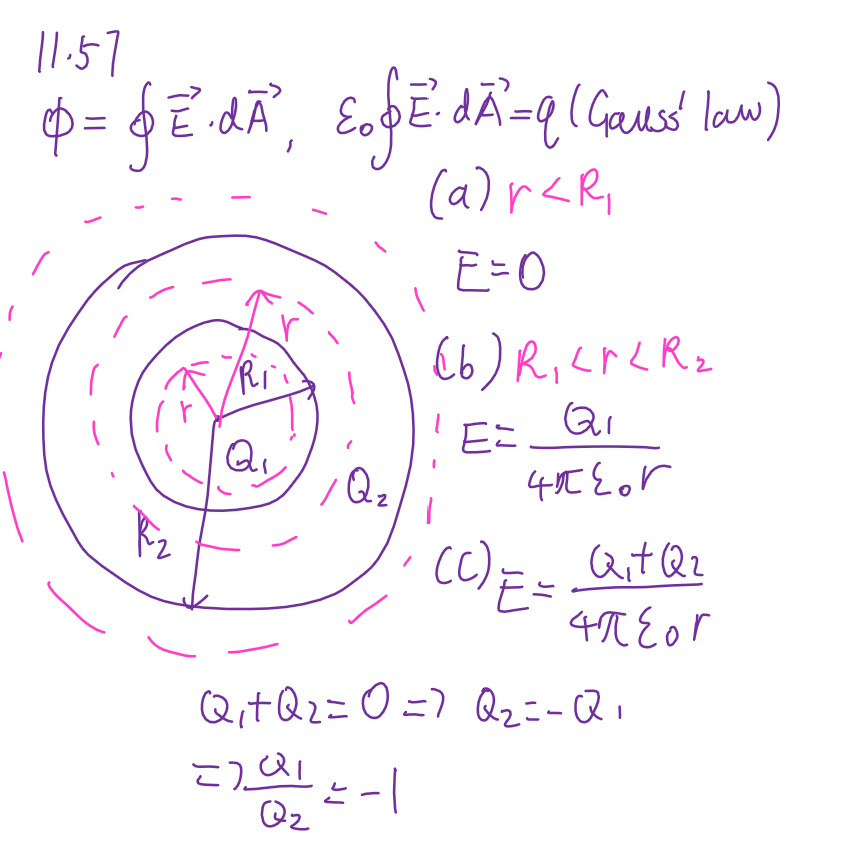 11.57
Φ = ∮ E⃗ · dA⃗ , ε₀∮ E⃗ · dA⃗ = q (Gauss' law)
(a) r < R₁
E = 0
(b) R₁ < r < R₂
E = Q₁ / 4πε₀r
(c) E = Q₁ + Q₂ / 4πε₀r
r
R₁
r
Q₁
Q₂
R₂
Q₁ + Q₂ = 0 ⇒ Q₂ = -Q₁
⇒ Q₁ / Q₂ = -1